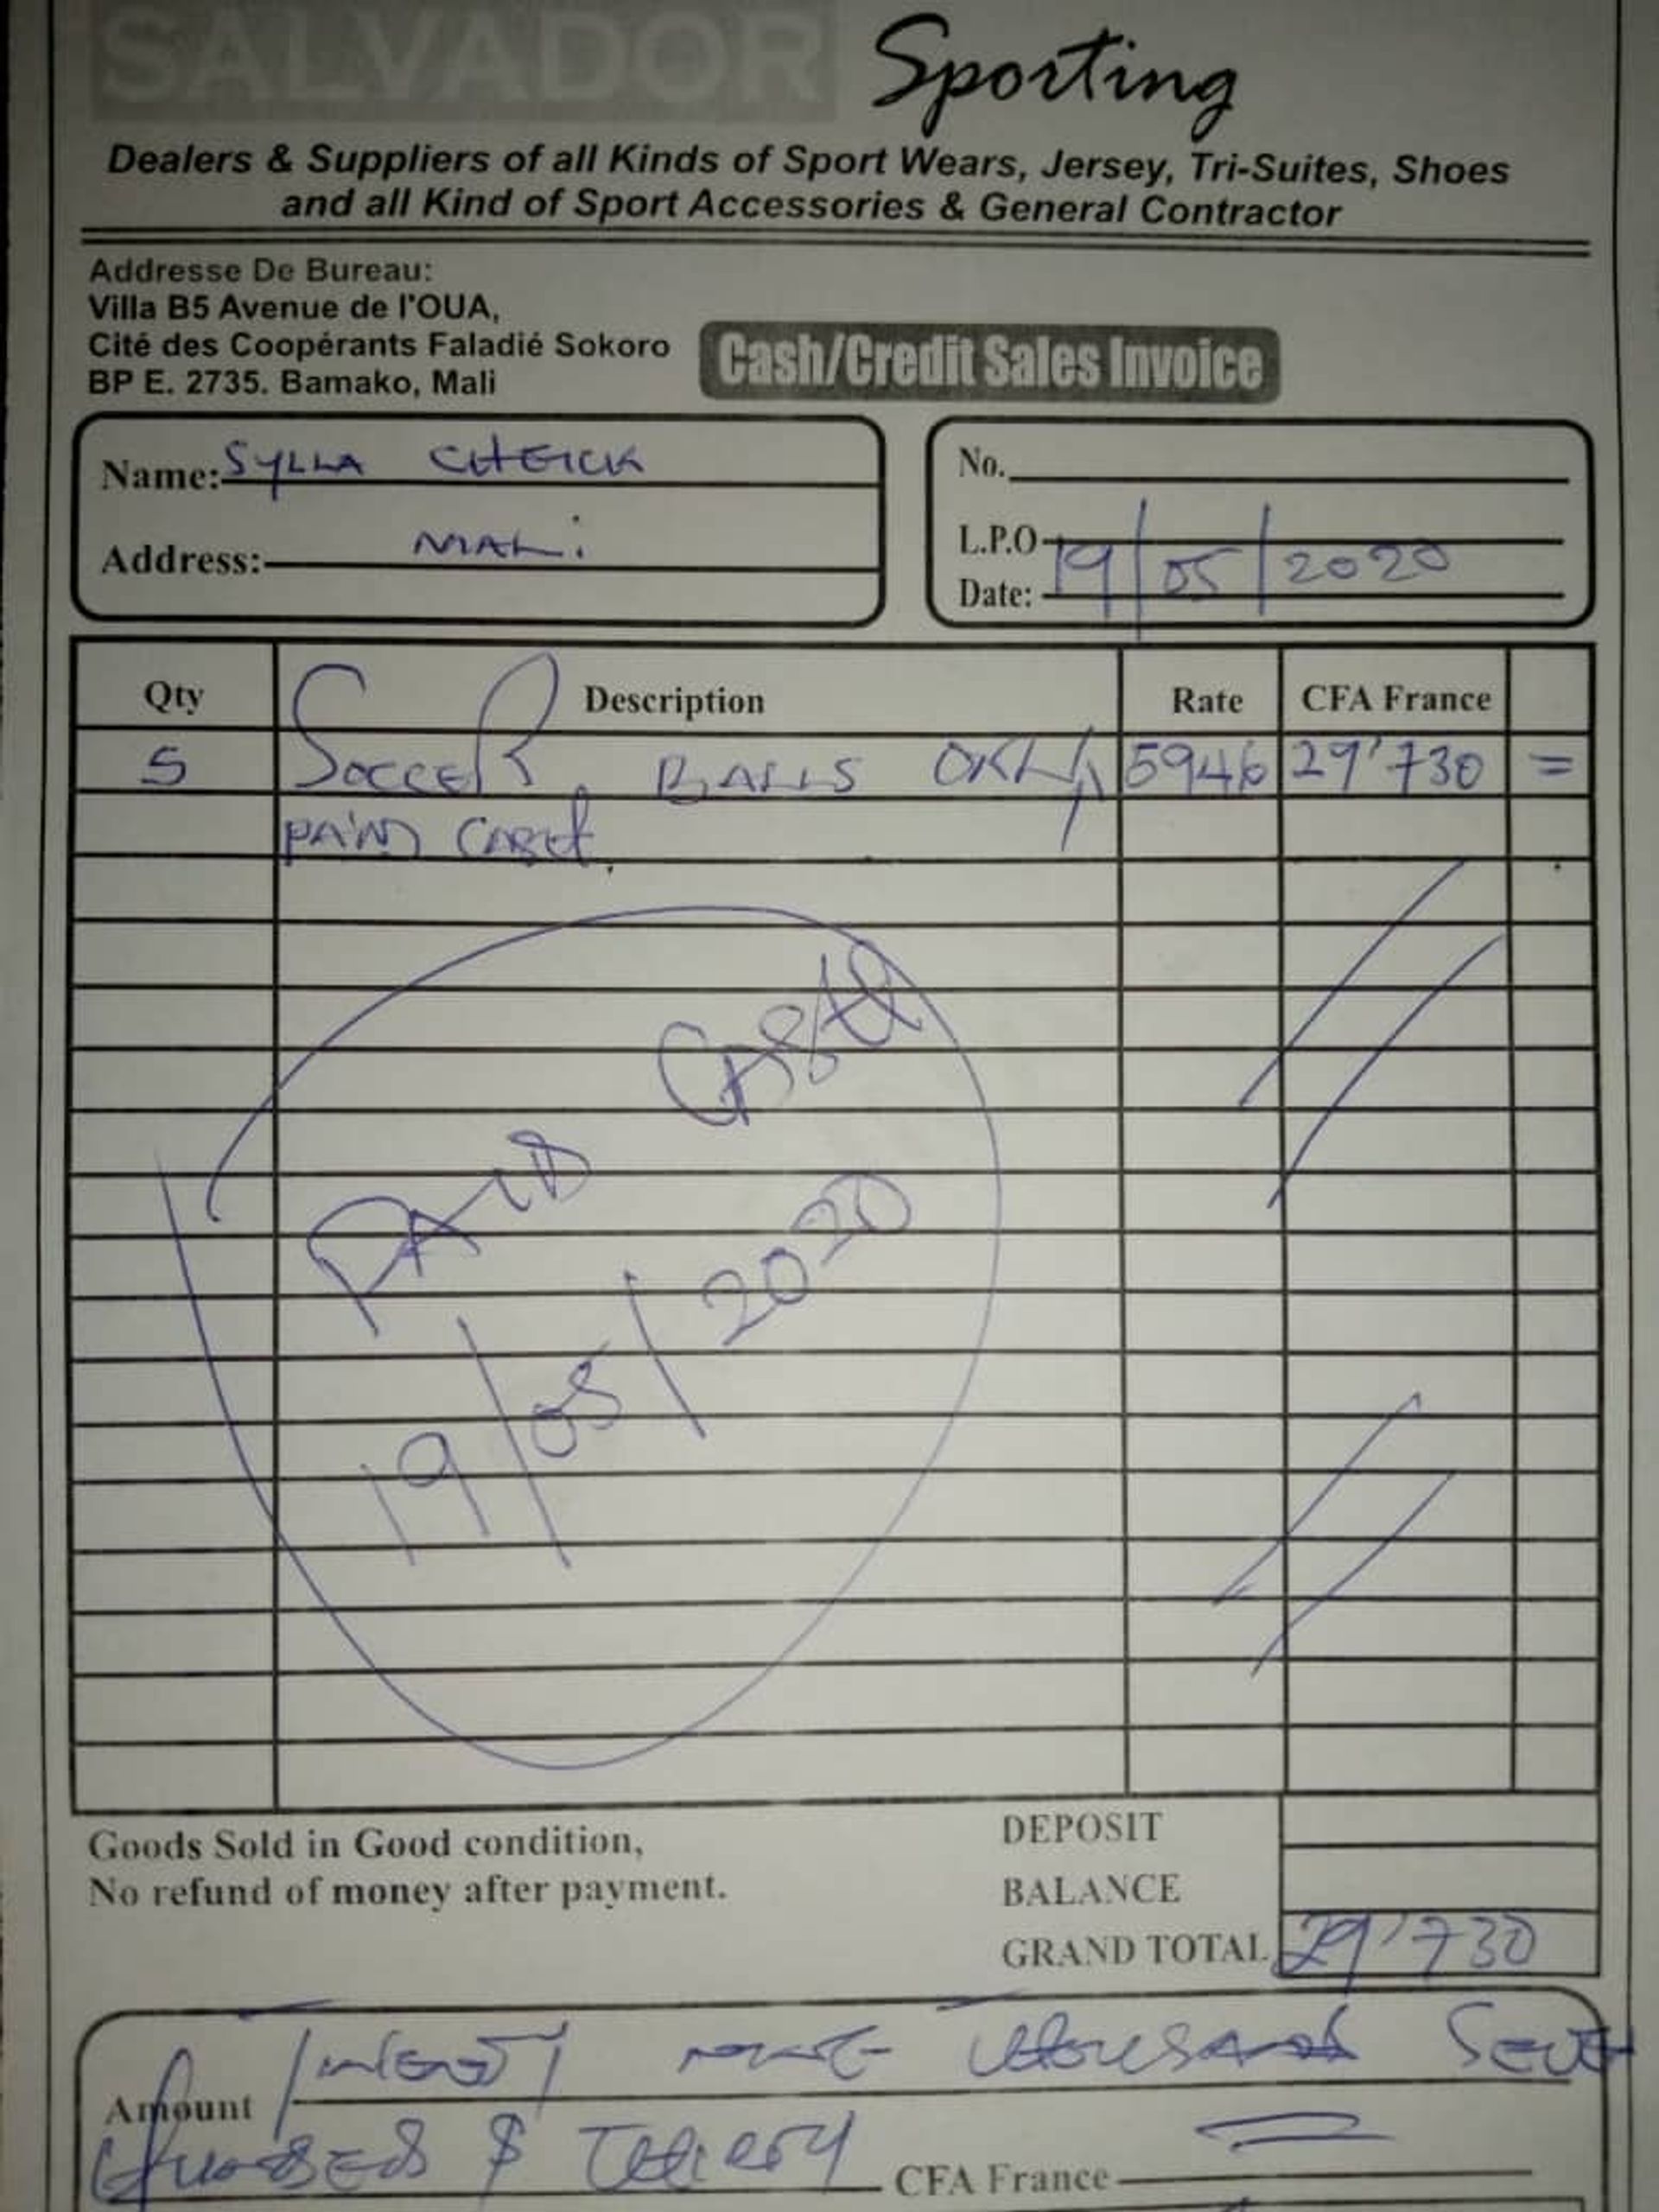 SALVADOR Sporting
Dealers & Suppliers of all Kinds of Sport Wears, Jersey, Tri-Suites, Shoes
and all Kind of Sport Accessories & General Contractor
Addresse De Bureau:
Villa B5 Avenue de l'OUA,
Cité des Coopérants Faladié Sokoro
BP E. 2735. Bamako, Mali
Cash/Credit Sales Invoice
Name: SYLLA CHEICK
Address: MALi
No.
L.P.O
Date: 19/05/2020
Qty Description Rate CFA France
5 SOCCER BALLS ONLY 5946 29'730 =
PAID CASH.
PAID CASH
19/05/2020
Goods Sold in Good condition,
No refund of money after payment.
DEPOSIT
BALANCE
GRAND TOTAL 29'730
Amount Thousand Seven
Hundred $ Thirty CFA France